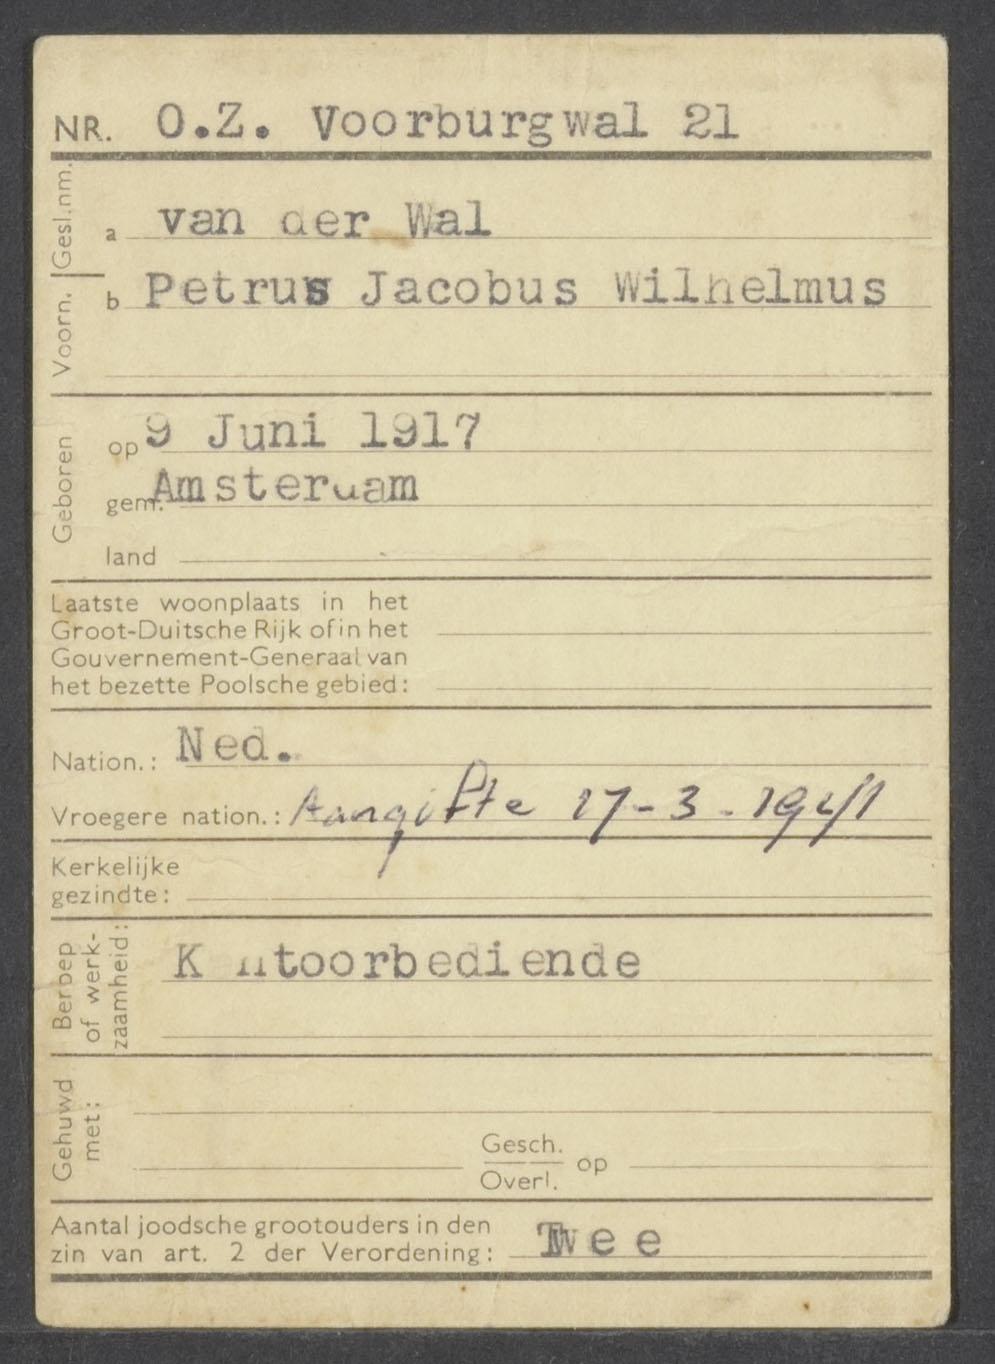 NR. O.Z. Voorburgwal 21
Gesl.nm. a van der Wal
Voorn. b Petrus Jacobus Wilhelmus
Geboren
op 9 Juni 1917
gem. Amsterdam
land
Laatste woonplaats in het
Groot-Duitsche Rijk of in het
Gouvernement-Generaal van
het bezette Poolsche gebied:
Nation.: Ned.
Vroegere nation.: Aangifte 17-3-1941
Kerkelijke
gezindte:
Beroep
of werk-
zaamheid:
K ntoorbediende
Gehuwd
met:
Gesch.
Overl. op
Aantal joodsche grootouders in den
zin van art. 2 der Verordening: Twee